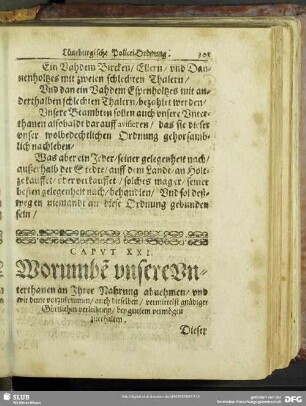 Lüneburgische Policei-Ordnung.
Ein Vahdem Bircken / Ellern / vnd Dan-
nenholtzes mit zweien schlechten Thalern /
Vnd dan ein Vahdem Espenholtzes mit an-
derthalben schlechten Thalern / bezahlet werden /
Vnsere Beambten sollen auch vnsere Vnter-
thanen alsobaldt darauff avisieren / das sie dieser
vnser wolbedechtlichen Ordnung gehorsamb-
lich nachleben /
Was aber ein Jeder / seiner gelegenheit nach /
ausserhalb der Stedte / auff dem Lande / an Holt-
ze kauffet / oder verkauffet / solches mag er / seiner
besten gelegenheit nach / behandlen / Vnd sol deß-
wegen niemandt an diese Ordnung gebunden
sein /
CAPVT XXI.
Worumbē vnsere Vn-
terthanen an Ihrer Nahrung abnehmen / vnd
wie deme vorzukommen / auch dieselben / vermittelst gnädiger
Göttlichen verleihung / bey gutem vermögen
zuerhalten.
Dieser
SLUB
Wir führen Wissen.
gefördert von der
Deutschen Forschungsgemeinschaft
DFG